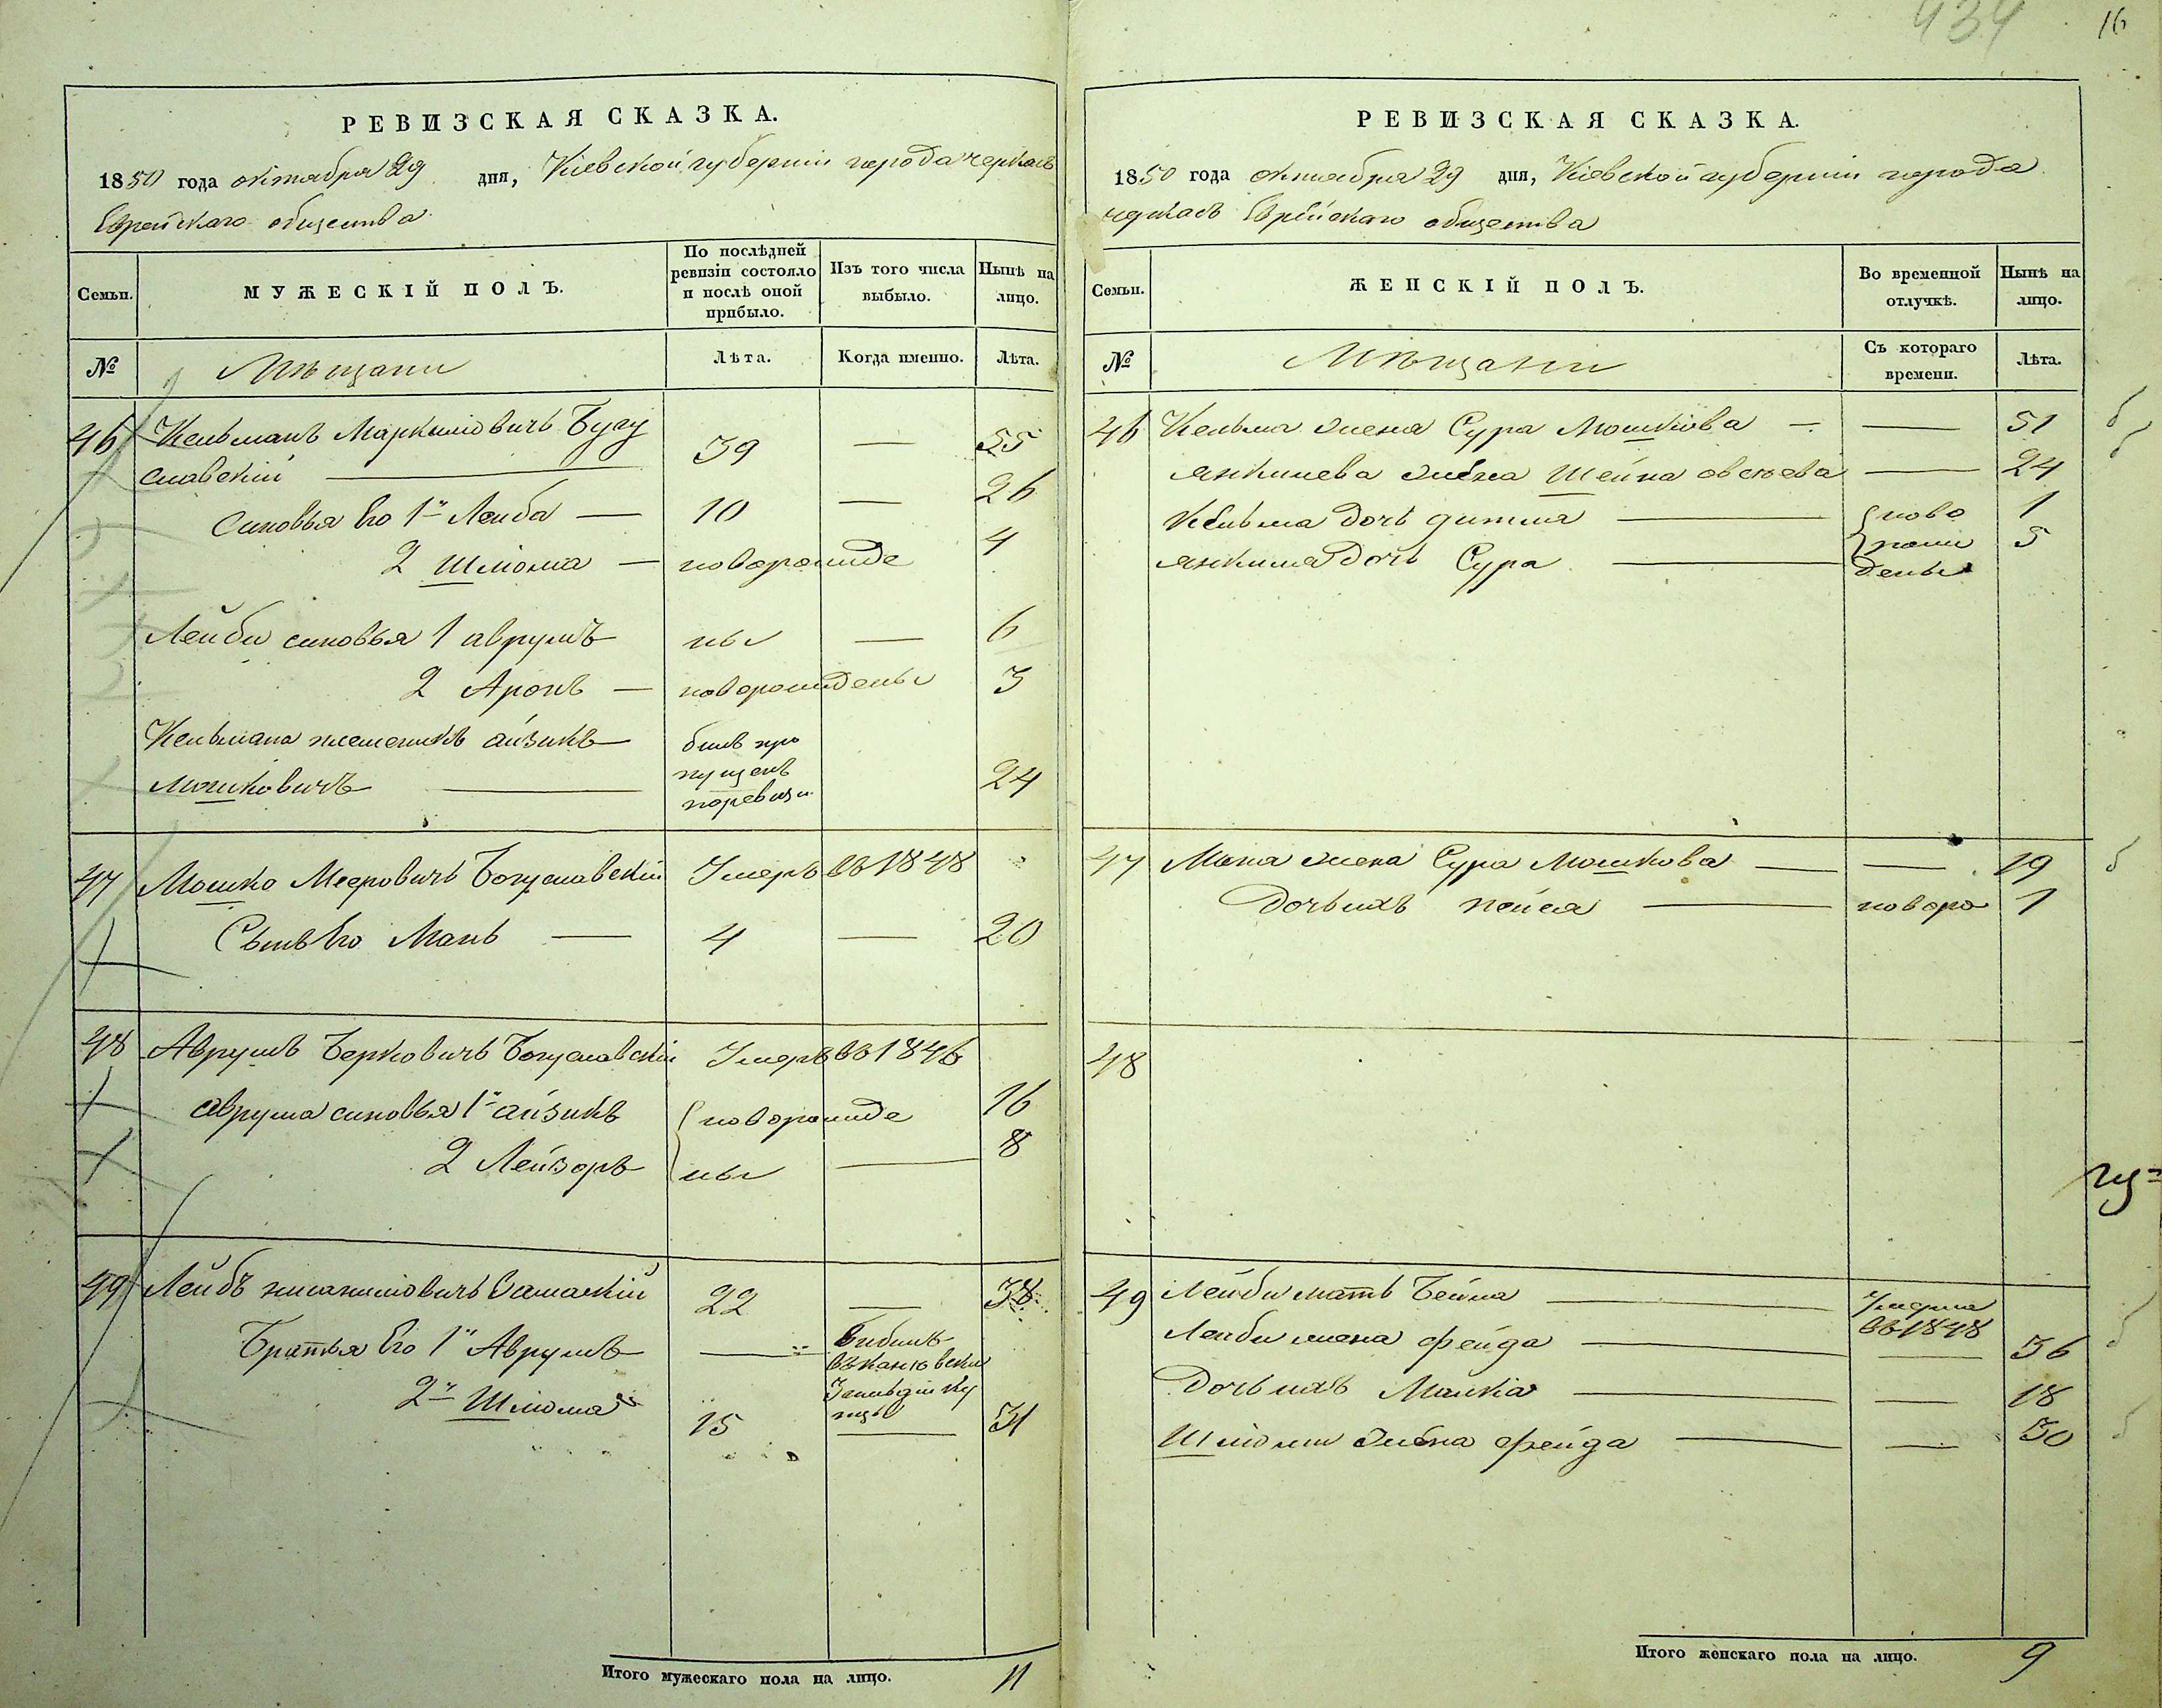 434
16
РЕВИЗСКАЯ СКАЗКА.
1850 года октября 29 дня, Кіевской губерніи города черкасъ
Еврейскаго общества
Семьи.
МУЖЕСКІЙ ПОЛЪ.
По послѣдней ревизіи состояло и послѣ оной прибыло.
Изъ того числа выбыло.
Нынѣ на лицо.
№
Мѣщани
Лѣта.
Когда именно.
Лѣта.
46 Кельманъ Маркыловичъ Бугу 39 — 55
славскій
синовья Его 1й Лейба — 10 — 26
2 Шліома — новорожде 4
Лейби синовья 1 аврумъ ны — 6
2 Аронъ — новорождены 3
Кельмана племеникъ айзикъ билъ про
Мошковичъ пущенъ 24
поревизи
47 Мошко Мееровичъ Богуславскій Умеръ въ 1848
Сынъ Его Манъ — 4 — 20
48 Аврумъ Берковичъ Богуславскій Умеръ въ 1846
аврума синовья 1й айзикъ новорожде 16
2 Лейзоръ ны — 8
49 Лейбъ 22 — 38
Братья Его 1й Аврумъ —
2й Шліома 15 — 31
Итого мужескаго пола на лицо. 11
РЕВИЗСКАЯ СКАЗКА.
1850 года октября 29 дня, Кіевской губерніи города
черкасъ Еврейскаго общества
Семьи.
ЖЕНСКІЙ ПОЛЪ.
Во временной отлучкѣ.
Нынѣ на лицо.
№
Мѣщани
Съ котораго времени.
Лѣта.
46 Кельма жена Сура Мошкова — — 51
жена Шейна овсеева — 24
Кельма дочь — ново 1
дочь Сура — рож 5
дены
47 Мана жена Сура Мошкова — — 19
Дочь ихъ пейся — новоро 1
48
49 Лейби мать Бейла — Умерла
въ 1848
Лейби жена фейга — — 36
Дочь ихъ Малка — — 18
Шліоми жена фейга — — 30
Итого женскаго пола на лицо. 9